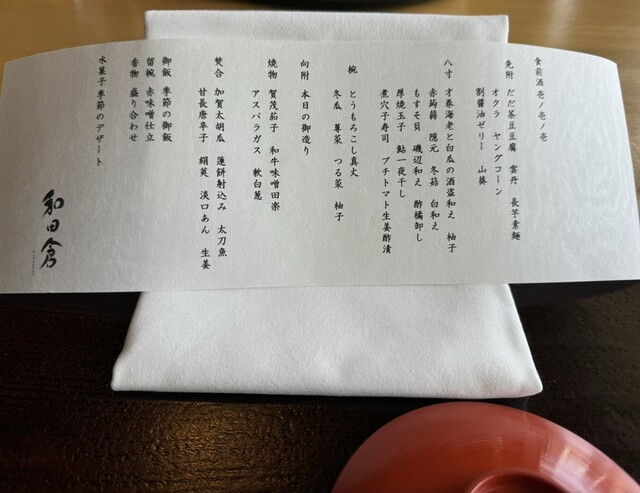 食前酒 壱ノ壱ノ壱
先附 だだ茶豆豆腐 雲丹 長芋素麺
オクラ ヤングコーン
割醤油ゼリー 山葵
八寸 才巻海老と白瓜の酒盗和え 柚子
赤蒟蒻 隠元 冬菇 白和え
もすそ貝 磯辺和え 酢橘卸し
厚焼玉子 鮎一夜干し
煮穴子寿司 プチトマト生姜酢漬
椀 とうもろこし真丈
冬瓜 蓴菜 つる菜 柚子
向附 本日の御造り
焼物 賀茂茄子 和牛味噌田楽
アスパラガス 軟白葱
焚合 加賀太胡瓜 蓮餅射込み 太刀魚
甘長唐辛子 絹莢 淡口あん 生姜
御飯 季節の御飯
留椀 赤味噌仕立
香物 盛り合わせ
水菓子 季節のデザート
和田倉